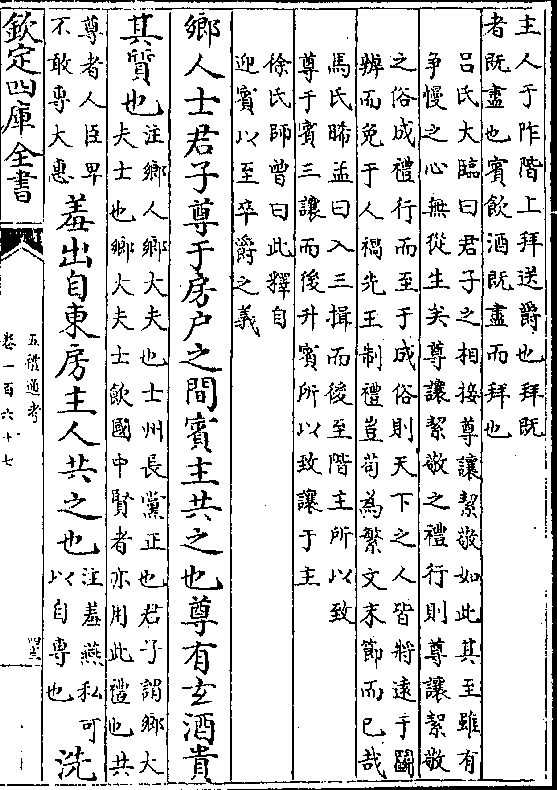 主人于阼階上拜送爵也拜既
者既盡也賓飲酒既盡而拜也
吕氏大臨曰君子之相接尊讓絜敬如此其至雖有
争慢之心無從生矣尊讓絜敬之禮行則尊讓絜敬
之俗成禮行而至于成俗則天下之人皆將遠于鬭
辨而免于人禍先王制禮豈苟為繁文末節而已哉
馬氏晞孟曰入三揖而後至階主所以致
尊于賓三讓而後升賓所以致讓于主
徐氏師曾曰此釋自
迎賓以至卒爵之義
鄉人士君子尊于房户之間賓主共之也尊有玄酒貴
其質也注鄉人鄉大夫也士州長黨正也君子謂鄉大
夫士也鄉大夫士飲國中賢者亦用此禮也共
尊者人臣卑
不敢專大惠羞出自東房主人共之也注羞燕私可
以自專也洗
欽定四庫全書
五禮通考
卷一百六十七
四三